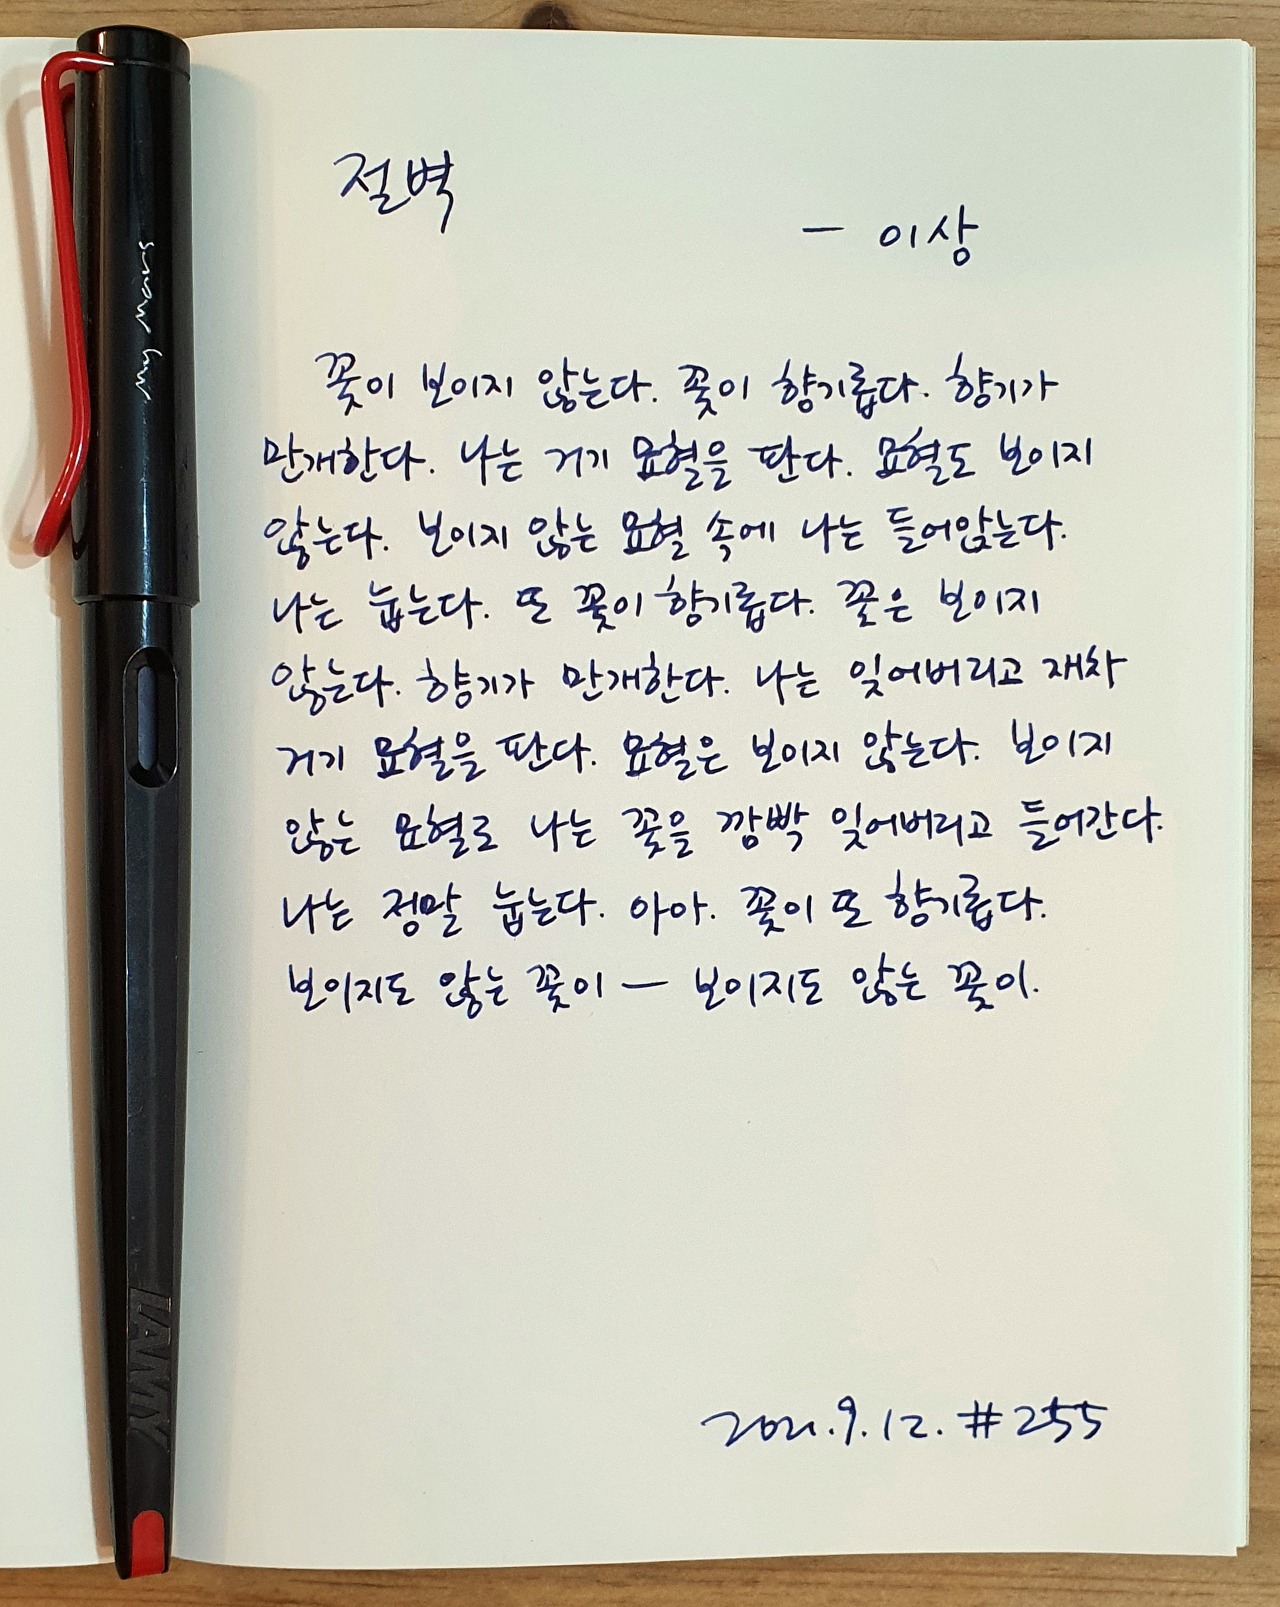 절벽
— 이상
꽃이 보이지 않는다. 꽃이 향기롭다. 향기가
만개한다. 나는 거기 묘혈을 판다. 묘혈도 보이지
않는다. 보이지 않는 묘혈 속에 나는 들어앉는다.
나는 눕는다. 또 꽃이 향기롭다. 꽃은 보이지
않는다. 향기가 만개한다. 나는 잊어버리고 재차
거기 묘혈을 판다. 묘혈은 보이지 않는다. 보이지
않는 묘혈로 나는 꽃을 깜빡 잊어버리고 들어간다.
나는 정말 눕는다. 아아. 꽃이 또 향기롭다.
보이지도 않는 꽃이 — 보이지도 않는 꽃이.
2021.9.12. #255
LAMY